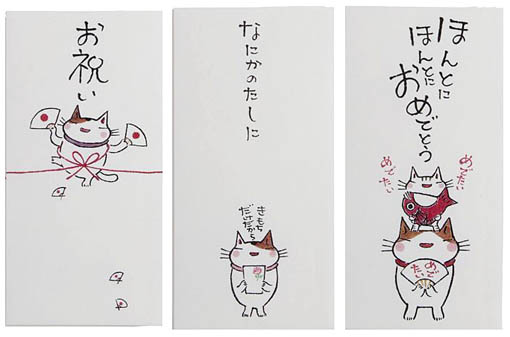 お祝い
なにかのたしに
きもち
だけだから
ほんとに
ほんとに
おめでとう
めでたい
めでたい
めでたい